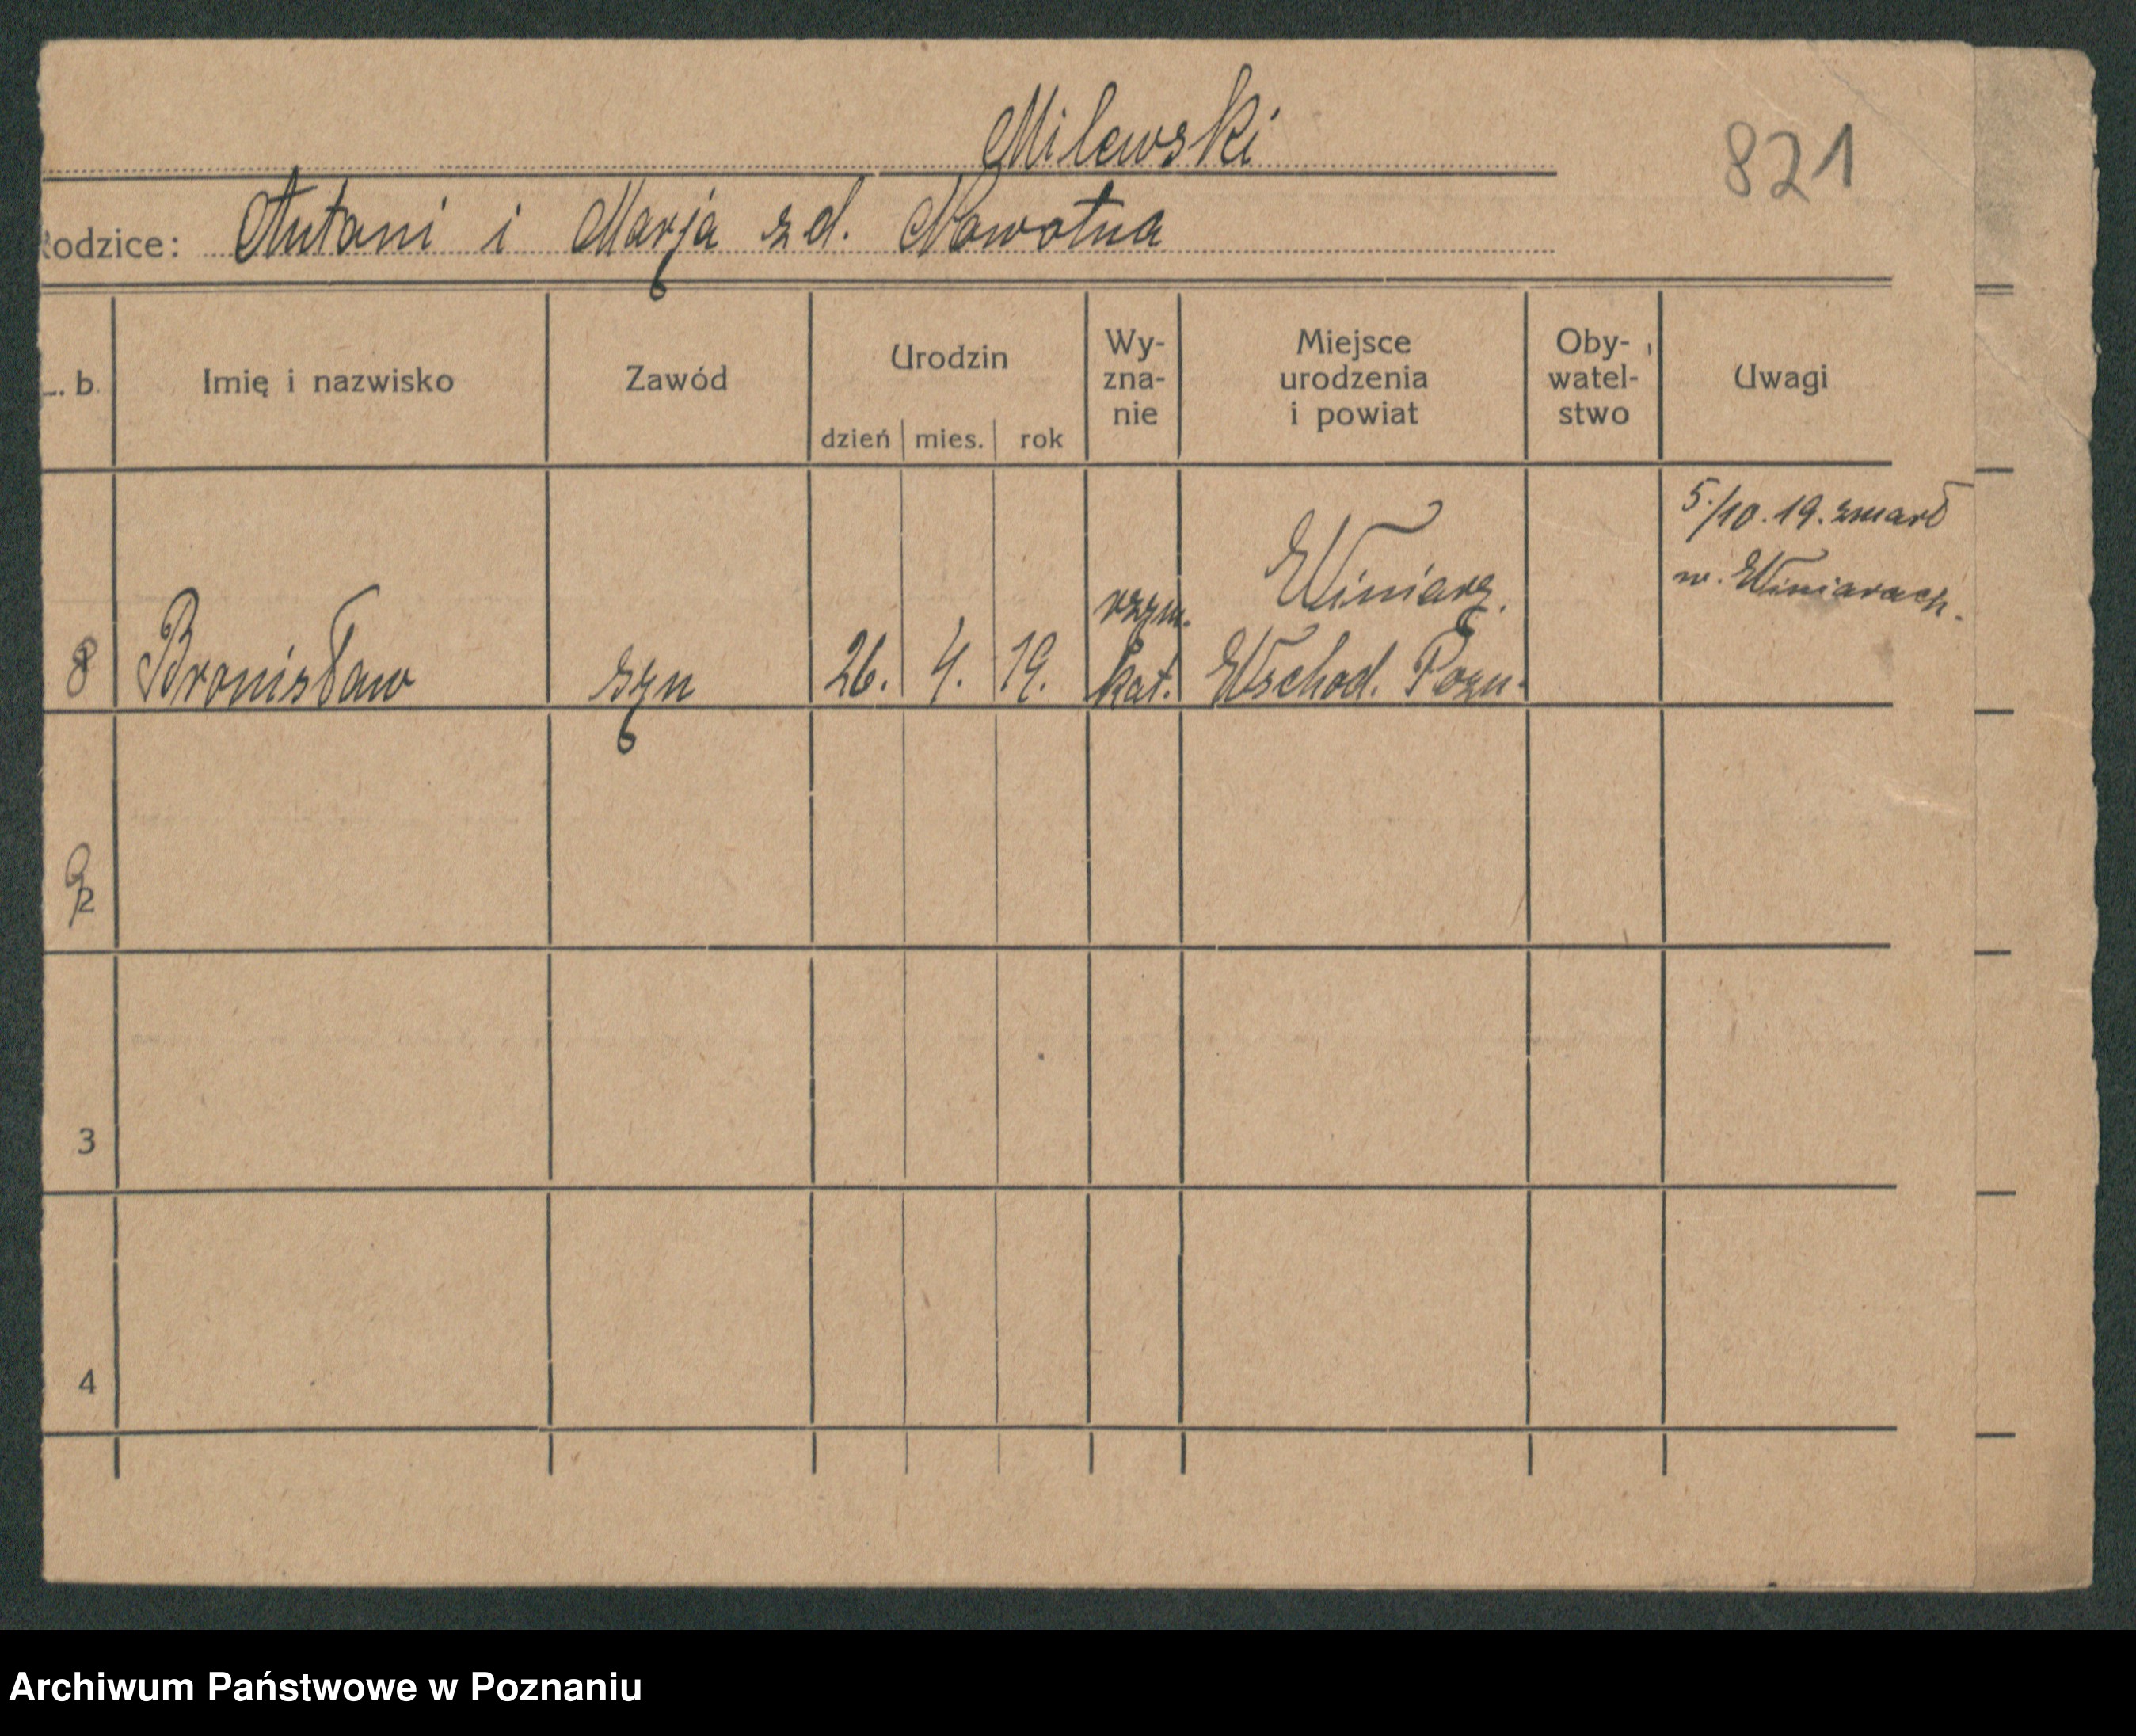 Milewski
821
Rodzice: Antoni i Marja z d. Nowotna
L. b. Imię i nazwisko Zawód Urodzin dzień mies. rok Wy-zna-nie Miejsce urodzenia i powiat Oby-watel-stwo Uwagi
5./10. 19. zmarł
w. Winiarach.
rzym. Winiary.
8 Bronisław syn 26. 4. 19. kat. Wschod. Pozn.
9
2
3
4
Archiwum Państwowe w Poznaniu